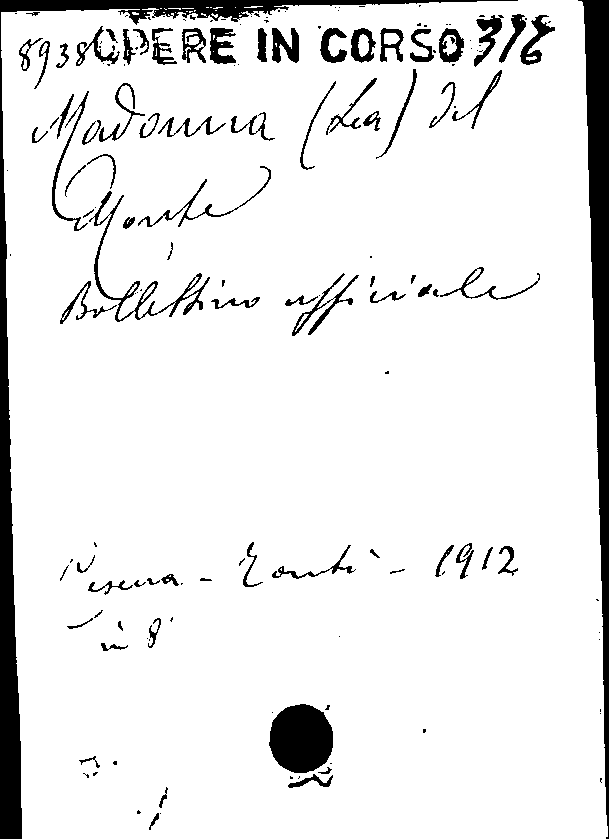 8938 OPERE IN CORSO 316
Madonna (La) del
Monte
Bollettino ufficiale
Cesena - Tonti - 1912
in 8°